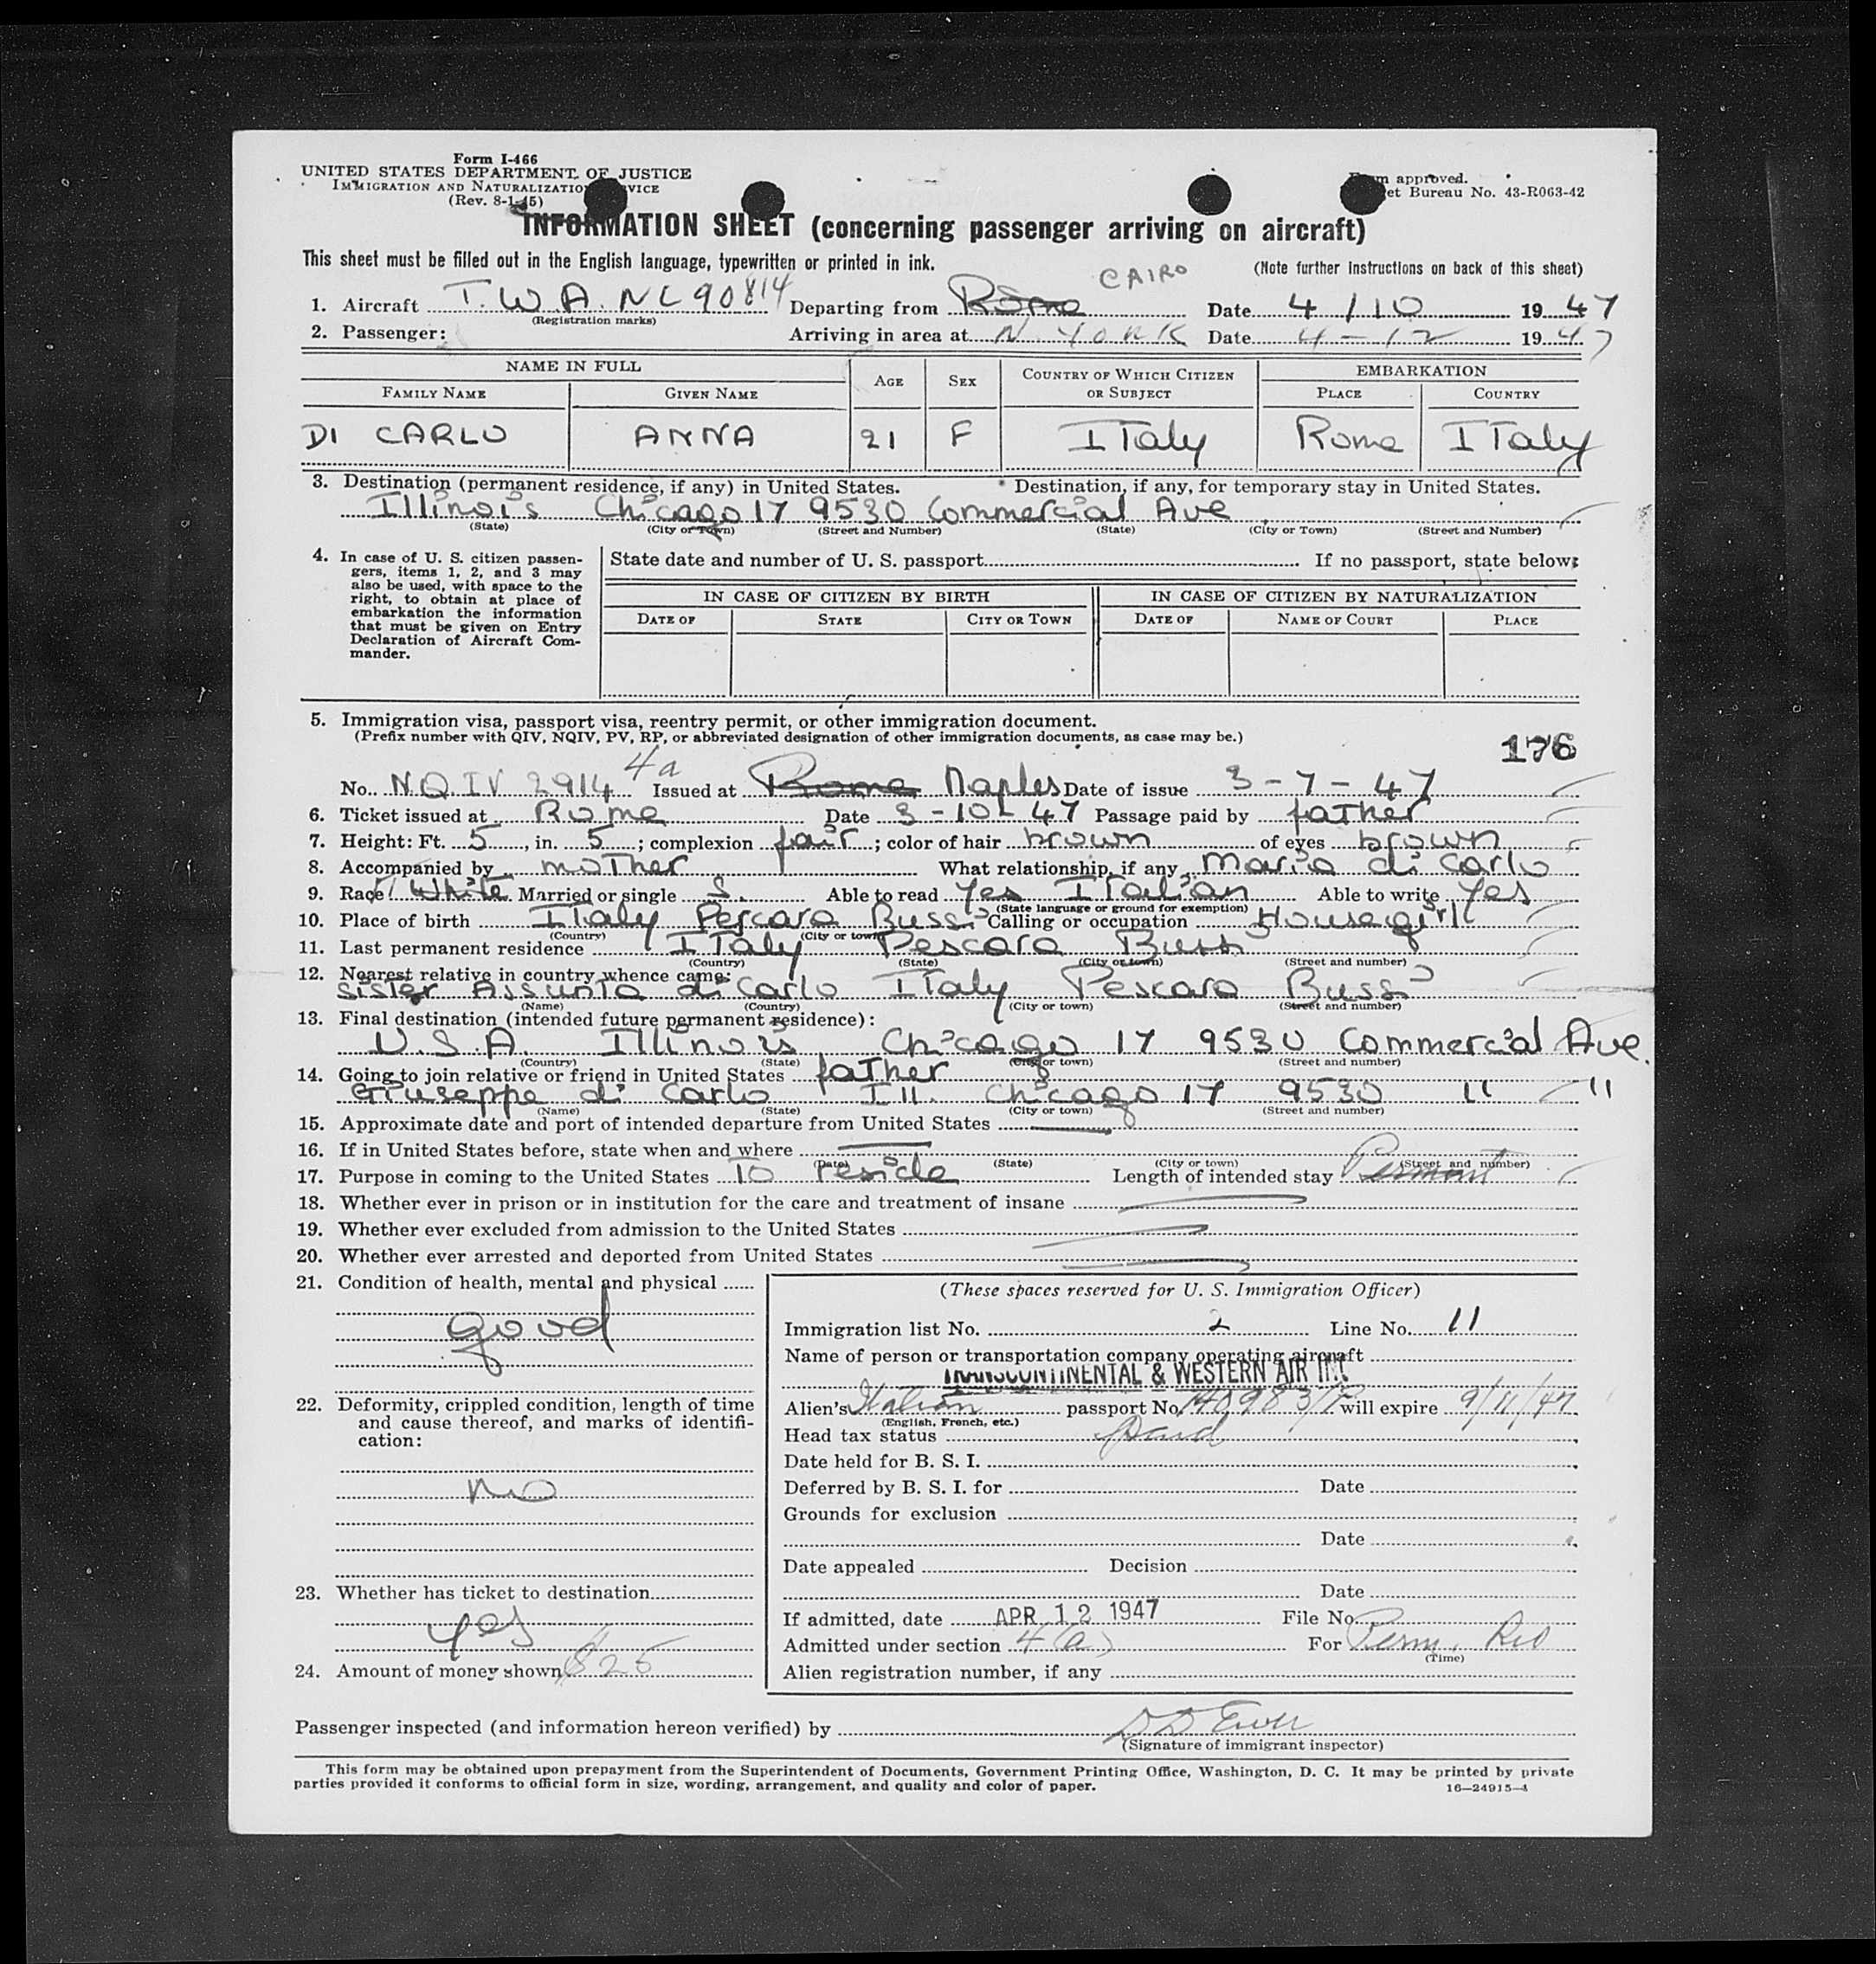 Form I-466
UNITED STATES DEPARTMENT OF JUSTICE
IMMIGRATION AND NATURALIZATION SERVICE
(Rev. 8-1-45)
Form approved.
Budget Bureau No. 43-R063-42
INFORMATION SHEET (concerning passenger arriving on aircraft)
This sheet must be filled out in the English language, typewritten or printed in ink.
(Note further instructions on back of this sheet)
CAIRO
1. Aircraft T.W.A. NC 90814 Departing from Rome Date 4/10 1947
(Registration marks)
2. Passenger: Arriving in area at N. YORK Date 4-12 1947
NAME IN FULL AGE SEX COUNTRY OF WHICH CITIZEN OR SUBJECT EMBARKATION
FAMILY NAME GIVEN NAME PLACE COUNTRY
DI CARLO ANNA 21 F ITaly Rome ITaly
3. Destination (permanent residence, if any) in United States. Destination, if any, for temporary stay in United States.
Illinois Chicago 17 9530 Commercial Ave
(State) (City or Town) (Street and Number) (State) (City or Town) (Street and Number)
4. In case of U. S. citizen passen-
gers, items 1, 2, and 3 may
also be used, with space to the
right, to obtain at place of
embarkation the information
that must be given on Entry
Declaration of Aircraft Com-
mander.
State date and number of U. S. passport If no passport, state below:
IN CASE OF CITIZEN BY BIRTH IN CASE OF CITIZEN BY NATURALIZATION
DATE OF STATE CITY OR TOWN DATE OF NAME OF COURT PLACE
5. Immigration visa, passport visa, reentry permit, or other immigration document.
(Prefix number with QIV, NQIV, PV, RP, or abbreviated designation of other immigration documents, as case may be.)
176
4a
No. NQIV 2914 Issued at Rome Naples Date of issue 3-7-47
6. Ticket issued at Rome Date 3-10-47 Passage paid by faTher
7. Height: Ft. 5, in. 5; complexion fair; color of hair brown of eyes brown
8. Accompanied by moTher What relationship, if any Maria di Carlo
9. Race White Married or single S. Able to read Yes ITalian Able to write Yes
(State language or ground for exemption)
10. Place of birth ITaly Pescara Bussi Calling or occupation Housegirl
(Country) (City or town)
11. Last permanent residence ITaly Pescara Bussi
(Country) (State) (City or town) (Street and number)
12. Nearest relative in country whence came:
sister Assunta di Carlo ITaly Pescara Bussi
(Name) (Country) (City or town) (Street and number)
13. Final destination (intended future permanent residence):
U.S.A. Illinois Chicago 17 9530 Commercial Ave.
(Country) (State) (City or town) (Street and number)
14. Going to join relative or friend in United States faTher
Giuseppe di Carlo Ill. Chicago 17 9530 " "
(Name) (State) (City or town) (Street and number)
15. Approximate date and port of intended departure from United States
16. If in United States before, state when and where
(Date) (State) (City or town) (Street and number)
17. Purpose in coming to the United States To reside Length of intended stay Permont
18. Whether ever in prison or in institution for the care and treatment of insane
19. Whether ever excluded from admission to the United States
20. Whether ever arrested and deported from United States
21. Condition of health, mental and physical
good
22. Deformity, crippled condition, length of time
and cause thereof, and marks of identifi-
cation:
no
23. Whether has ticket to destination
yes
24. Amount of money shown $25
(These spaces reserved for U. S. Immigration Officer)
Immigration list No. 2 Line No. 11
Name of person or transportation company operating aircraft
TRANSCONTINENTAL & WESTERN AIR INC
Alien's Italian passport No. 140983/P will expire 9/11/47
(English, French, etc.)
Head tax status Paid
Date held for B. S. I.
Deferred by B. S. I. for Date
Grounds for exclusion
Date
Date appealed Decision
Date
If admitted, date APR 12 1947 File No.
Admitted under section 4(a) For Perm. Res
(Time)
Alien registration number, if any
Passenger inspected (and information hereon verified) by
(Signature of immigrant inspector)
This form may be obtained upon prepayment from the Superintendent of Documents, Government Printing Office, Washington, D. C. It may be printed by private
parties provided it conforms to official form in size, wording, arrangement, and quality and color of paper.
16—24915-1